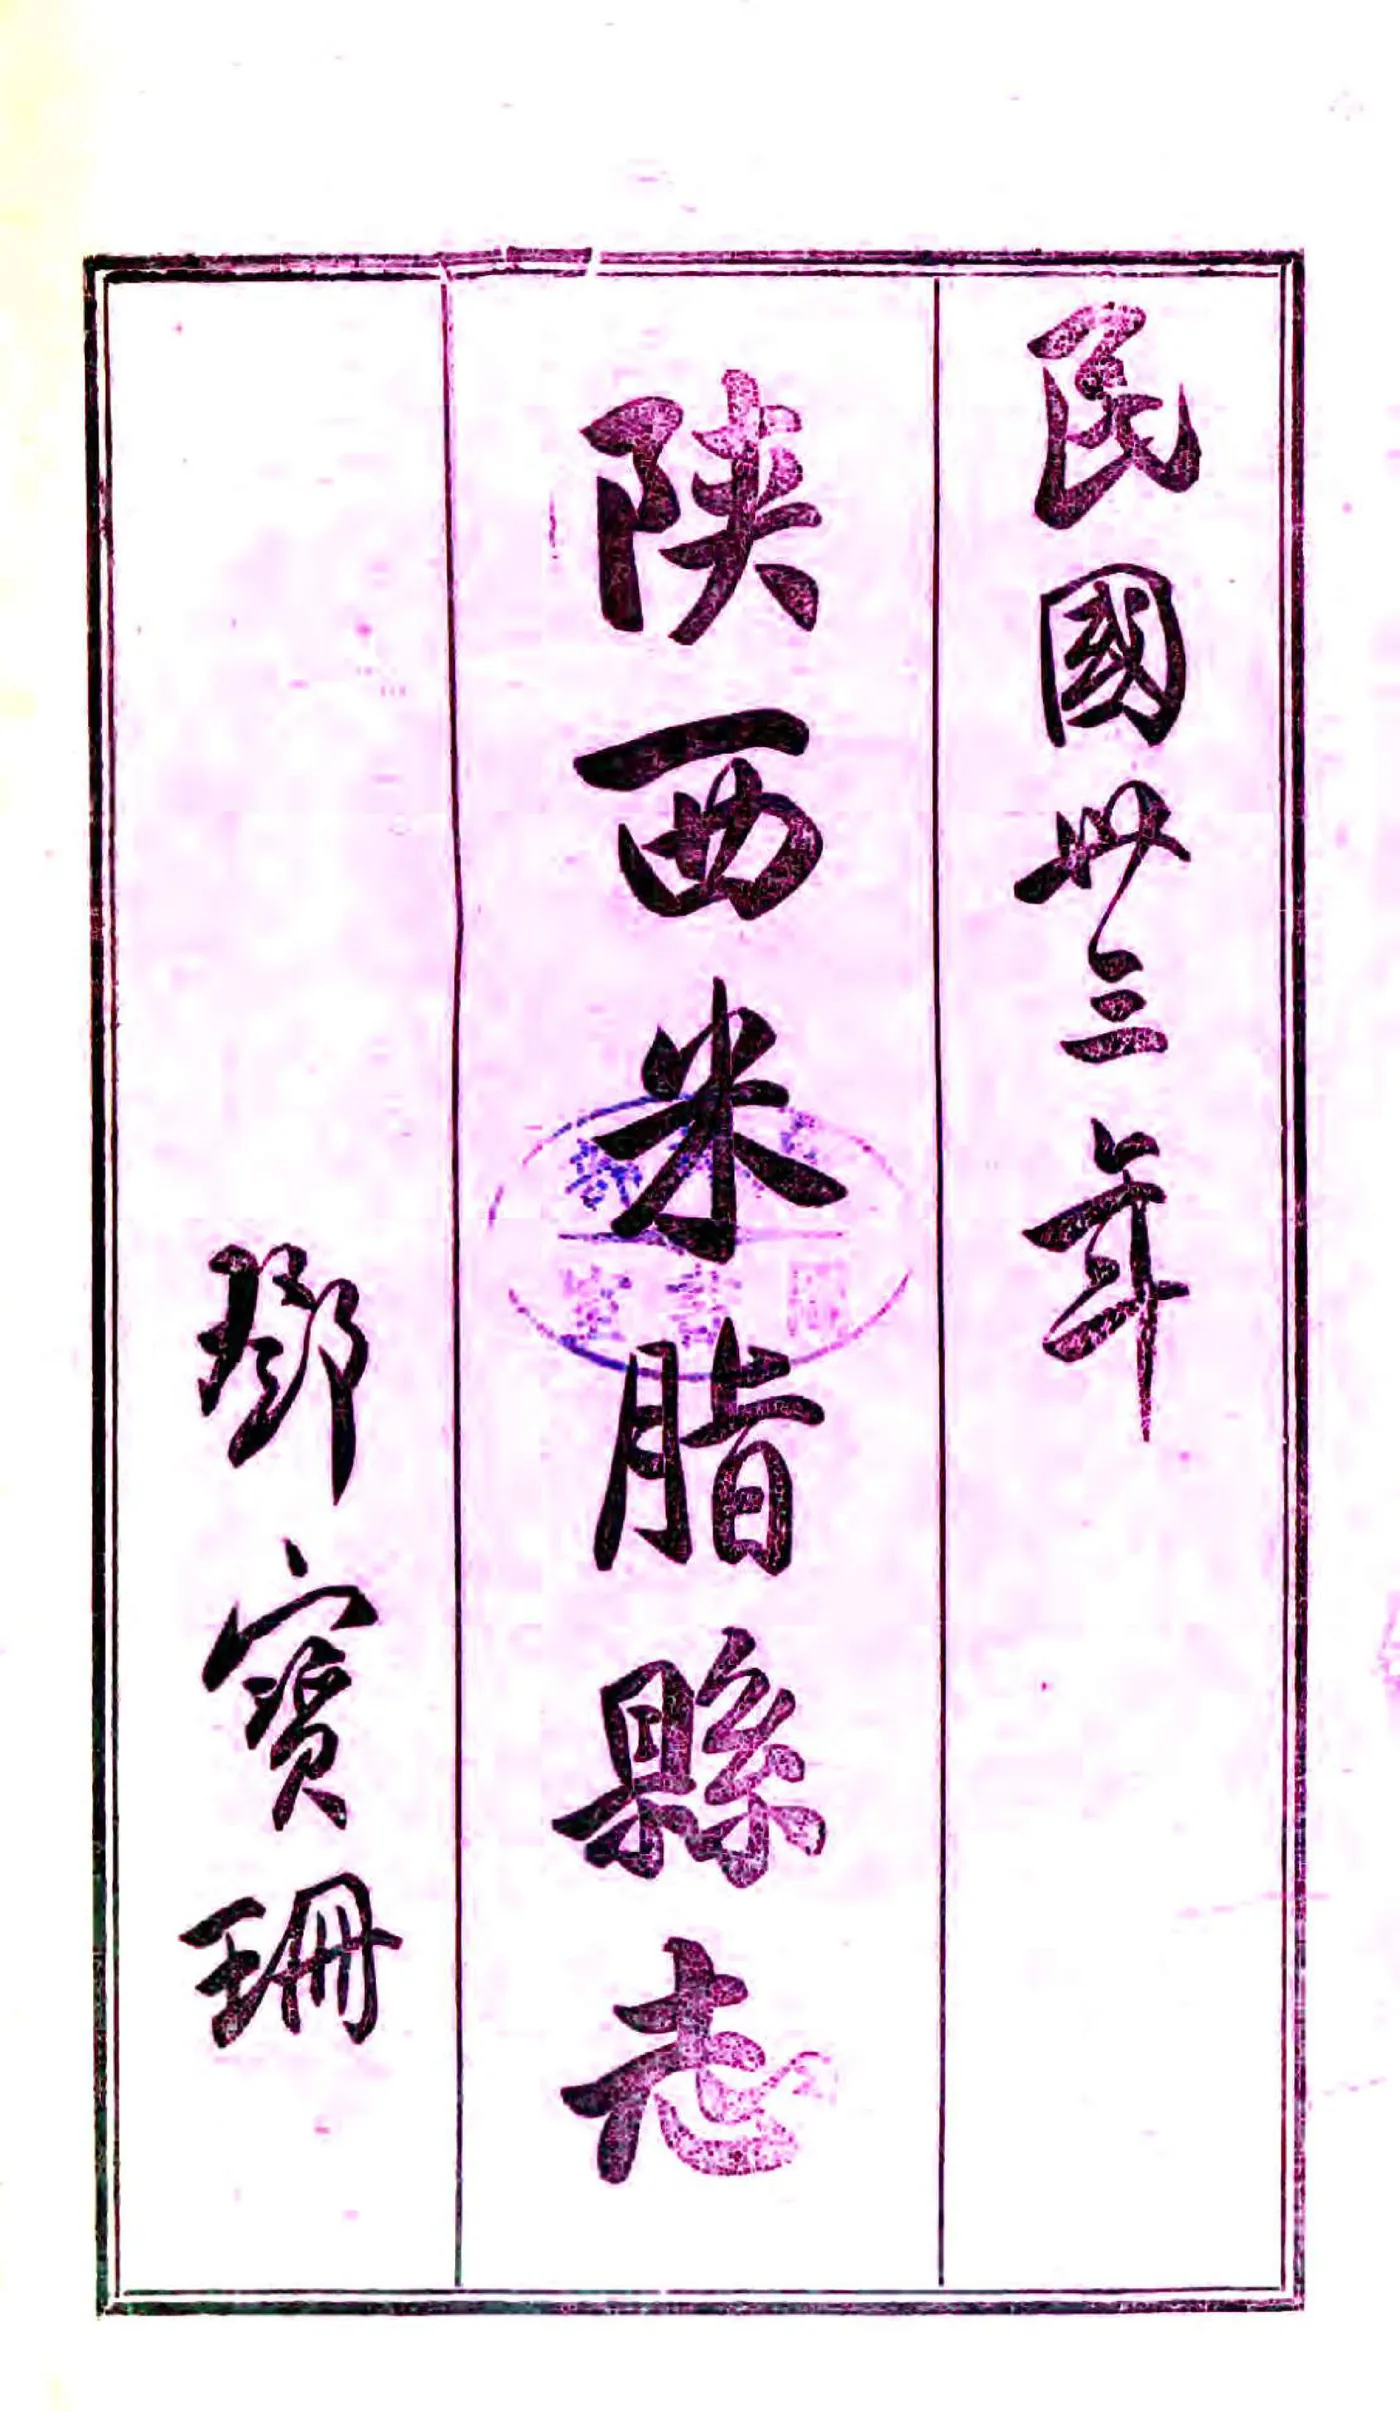 民國卅三年
陝西米脂縣志
鄧寶珊
圖書室